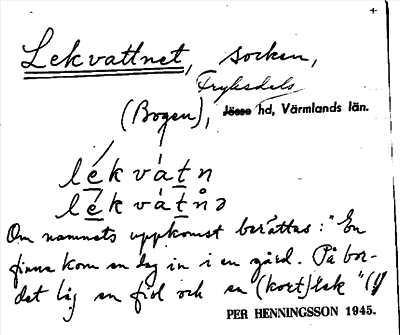 Lekvattnet, socken,
Fryksdals
(Bogen), Jösse hd, Värmlands län.
lékvátn
lékvátnə
Om namnets uppkomst berättas: "En
finne kom en dag in i en gård. På bor-
det låg en fiol och en (kort)lek "(
PER HENNINGSSON 1945.